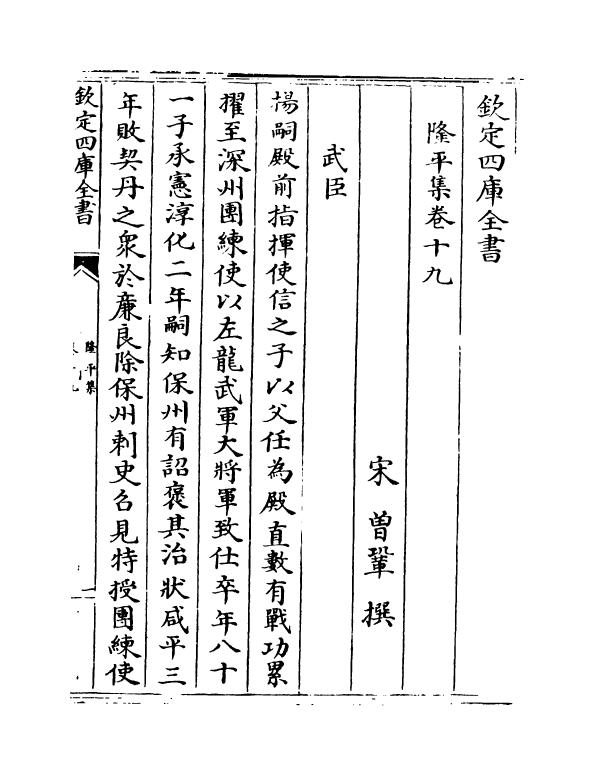 欽定四庫全書
隆平集卷十九
宋 曾鞏 撰
武臣
楊嗣殿前指揮使信之子以父任為殿直數有戰功累
擢至深州團練使以左龍武軍大將軍致仕卒年八十
一子承憲淳化二年嗣知保州有詔褒其治狀咸平三
年敗契丹之衆於廉良除保州刺史召見特授團練使
欽定四庫全書
隆平集